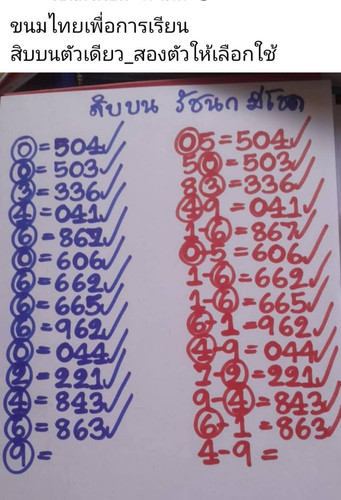 ขนมไทยเพื่อการเรียน
สิบบนตัวเดียว_สองตัวให้เลือกใช้
สิบบน รัชนก มีโชค
0=504✓ 05=504✓
0=503✓ 50=503✓
3=336✓ 83=336✓
4=041✓ 49=041✓
6=867✓ 1-6=867✓
0=606✓ 0-5=606✓
6=662✓ 1-6=662✓
6=665✓ 1-6=665✓
6=962✓ 6-1=962✓
0=044✓ 4-9=044✓
2=221✓ 7-2=221✓
4=843✓ 9-4=843✓
6=863✓ 6-1=863✓
9= 4-9=